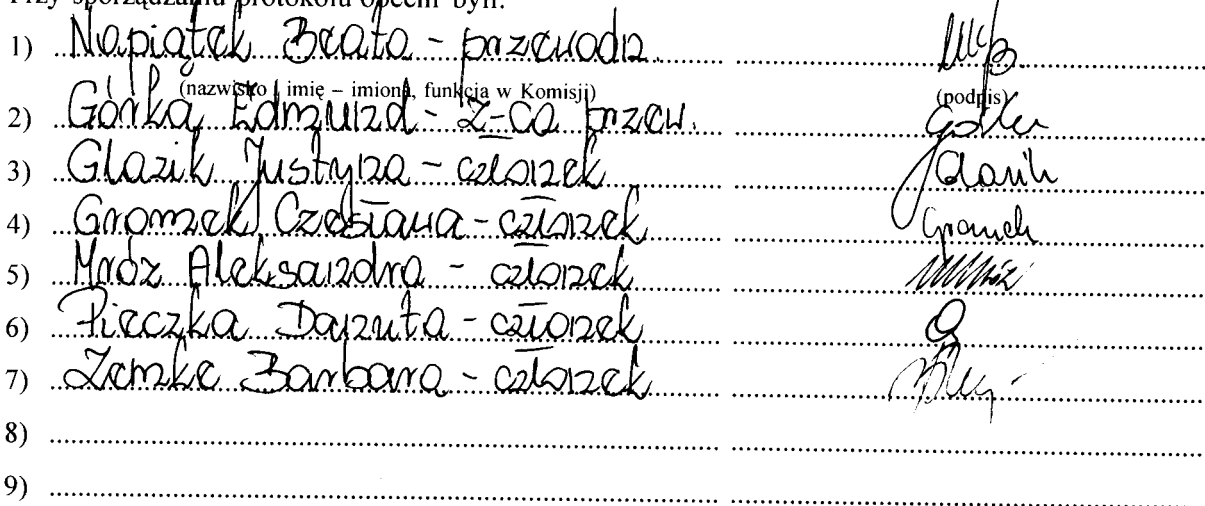 Przy sporządzaniu protokołu obecni byli:
1) Napiątek Beata - przewodn.
(nazwisko i imię – imiona, funkcja w Komisji) (podpis)
2) Górka Edmund - z-ca przew.
3) Glazik Justyna - członek
4) Gromek Czesława - członek
5) Mróz Aleksandra - członek
6) Pieczka Danuta - członek
7) Zemke Barbara - członek
8)
9)